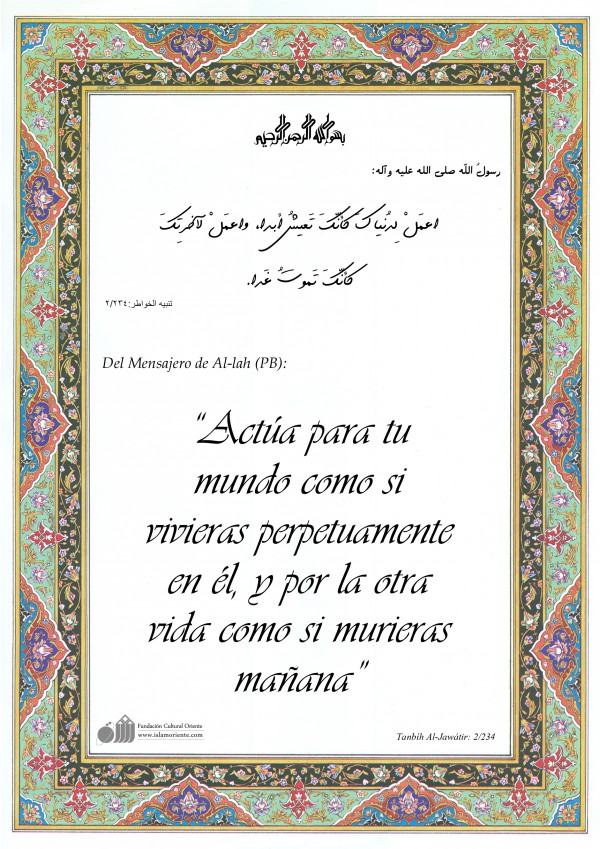 بسم الله الرحمن الرحيم
رسولُ اللّه صلى الله عليه وآله:
اعمَلْ لِدُنياكَ كأنَّكَ تَعيشُ أبدا، واعمَلْ لآخِرَتِكَ
كأنَّكَ تَموتُ غَدا.
تنبيه الخواطر: ٢/٢٣٤
Del Mensajero de Al-lah (PB):
“Actúa para tu
mundo como si
vivieras perpetuamente
en él, y por la otra
vida como si murieras
mañana”
Fundación Cultural Oriente
www.islamoriente.com
Tanbîh Al-Jawâtir: 2/234